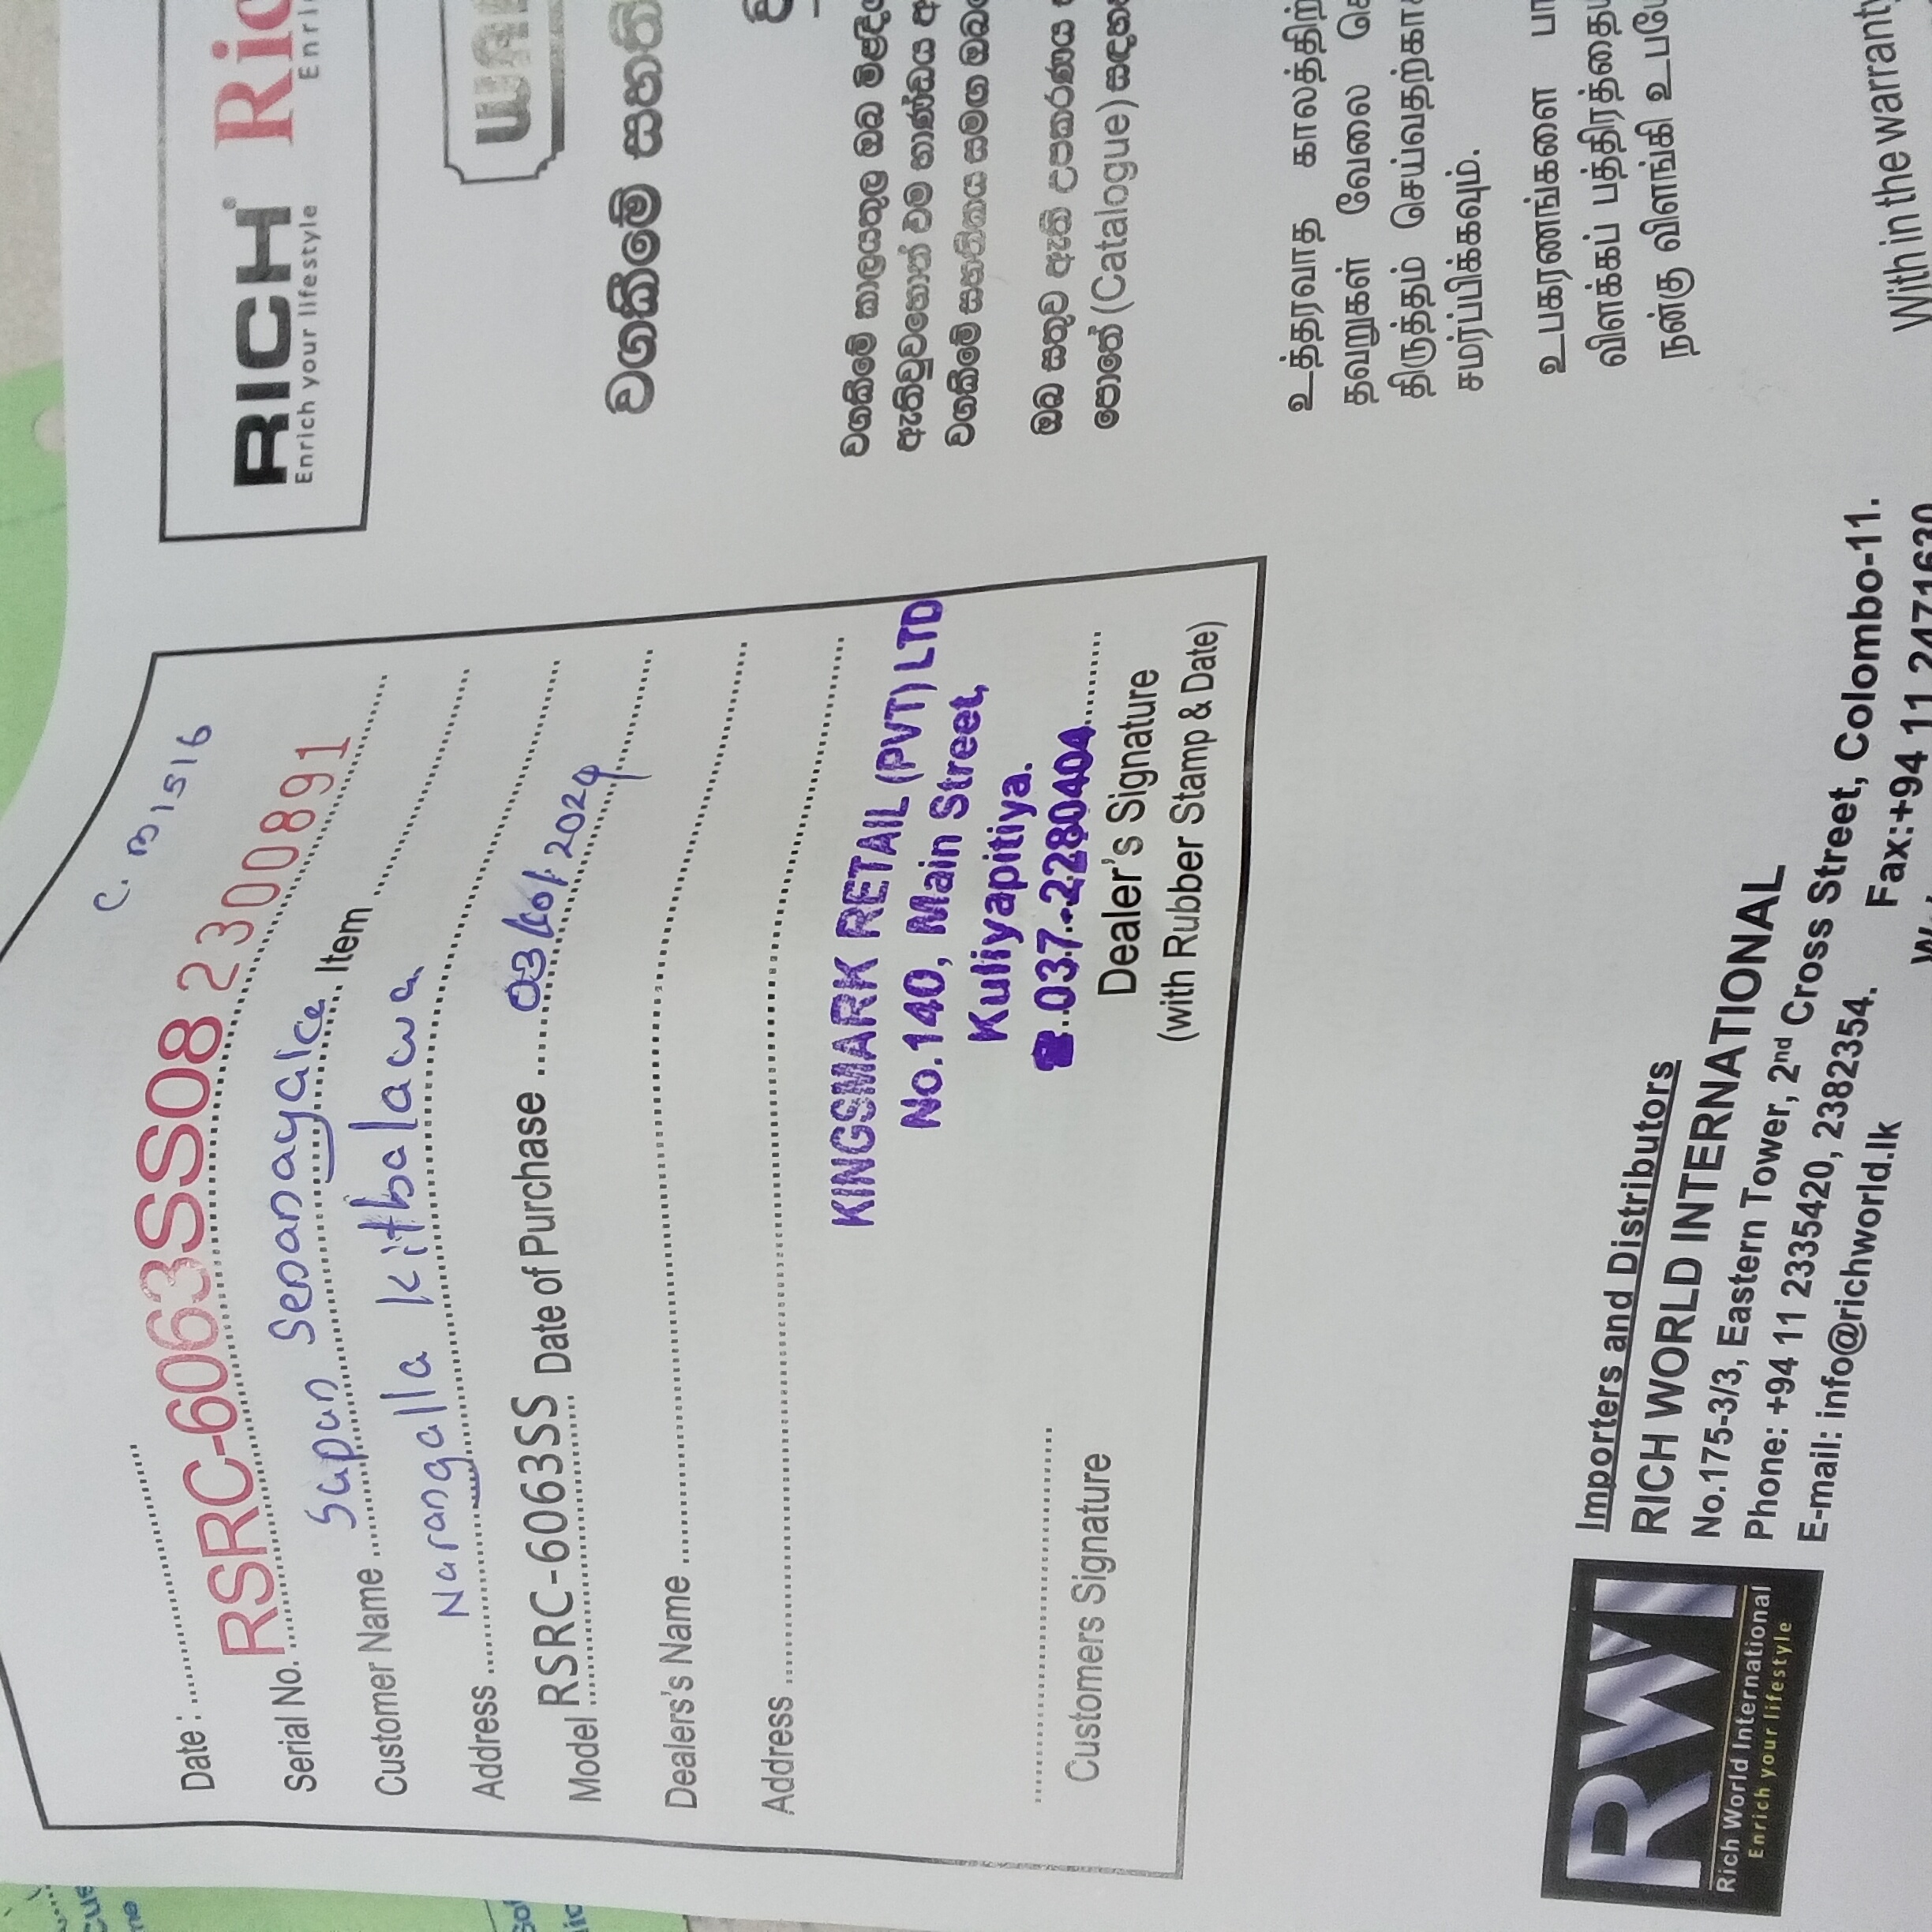 C. B 1516
Date : ........................
Serial No. RSRC-6063SS08 2300891
Customer Name Sapun Senanayake Item ........................
Address Narangalla Kithalawa
Model RSRC-6063SS Date of Purchase 03/06/2024
Dealers's Name ........................
Address ........................
KINGSMARK RETAIL (PVT) LTD
No.140, Main Street,
Kuliyapitiya.
☎ 037-2280404
Customers Signature
Dealer's Signature
(with Rubber Stamp & Date)
RICH®
Enrich your lifestyle
Ric
Enri
වගකීමේ සහති
වගකීමේ කාලයතුල ඔබ මළදී
ඇතිවුවහොත් එම භාණ්ඩය අ
වගකීමේ සහතිකය සමඟ ඔබ
ඔබ සතුව ඇති උපකරණය
පොතේ (Catalogue) සඳහ
உத்தரவாத காலத்திற்
தவறுகள் வேலை செ
திருத்தம் செய்வதற்கா
சமர்ப்பிக்கவும்.
உபகரணங்களை பா
விளக்கப் பத்திரத்தை
நன்கு விளங்கி உபயே
With in the warranty
RWI
Rich World International
Enrich your lifestyle
Importers and Distributors
RICH WORLD INTERNATIONAL
No.175-3/3, Eastern Tower, 2nd Cross Street, Colombo-11.
Phone: +94 11 2335420, 2382354. Fax:+94 11 2471630
E-mail: info@richworld.lk W